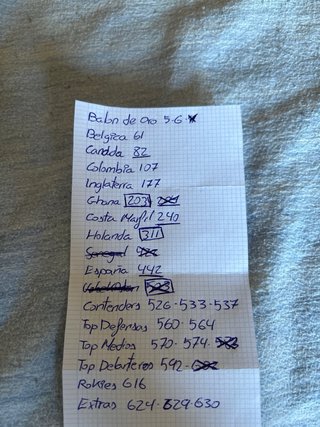 Balon de oro 5-6-
Belgica 61
Canada 82
Colombia 107
Inglaterra 177
Ghana 203
Costa Marfil 240
Holanda 311
Senegal
España 442
Contenders 526-533-537
Top Defensas 560-564
Top Medios 570-574-
Top Delanteros 592-
Rokies 616
Extras 624-629-630